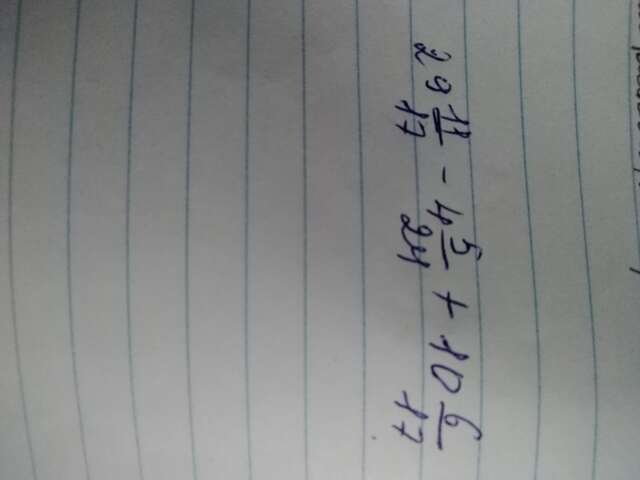 29 11/17 - 4 5/24 + 10 6/17